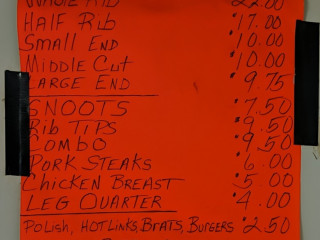 WHOLE RIB $22.00
HALF RIB $17.00
SMALL END $10.00
MIDDLE CUT $10.00
LARGE END $9.75
SNOOTS $7.50
RIB TIPS $9.50
COMBO $9.50
PORK STEAKS $6.00
CHICKEN BREAST $5.00
LEG QUARTER $4.00
POLISH, HOTLINKS, BRATS, BURGERS $2.50